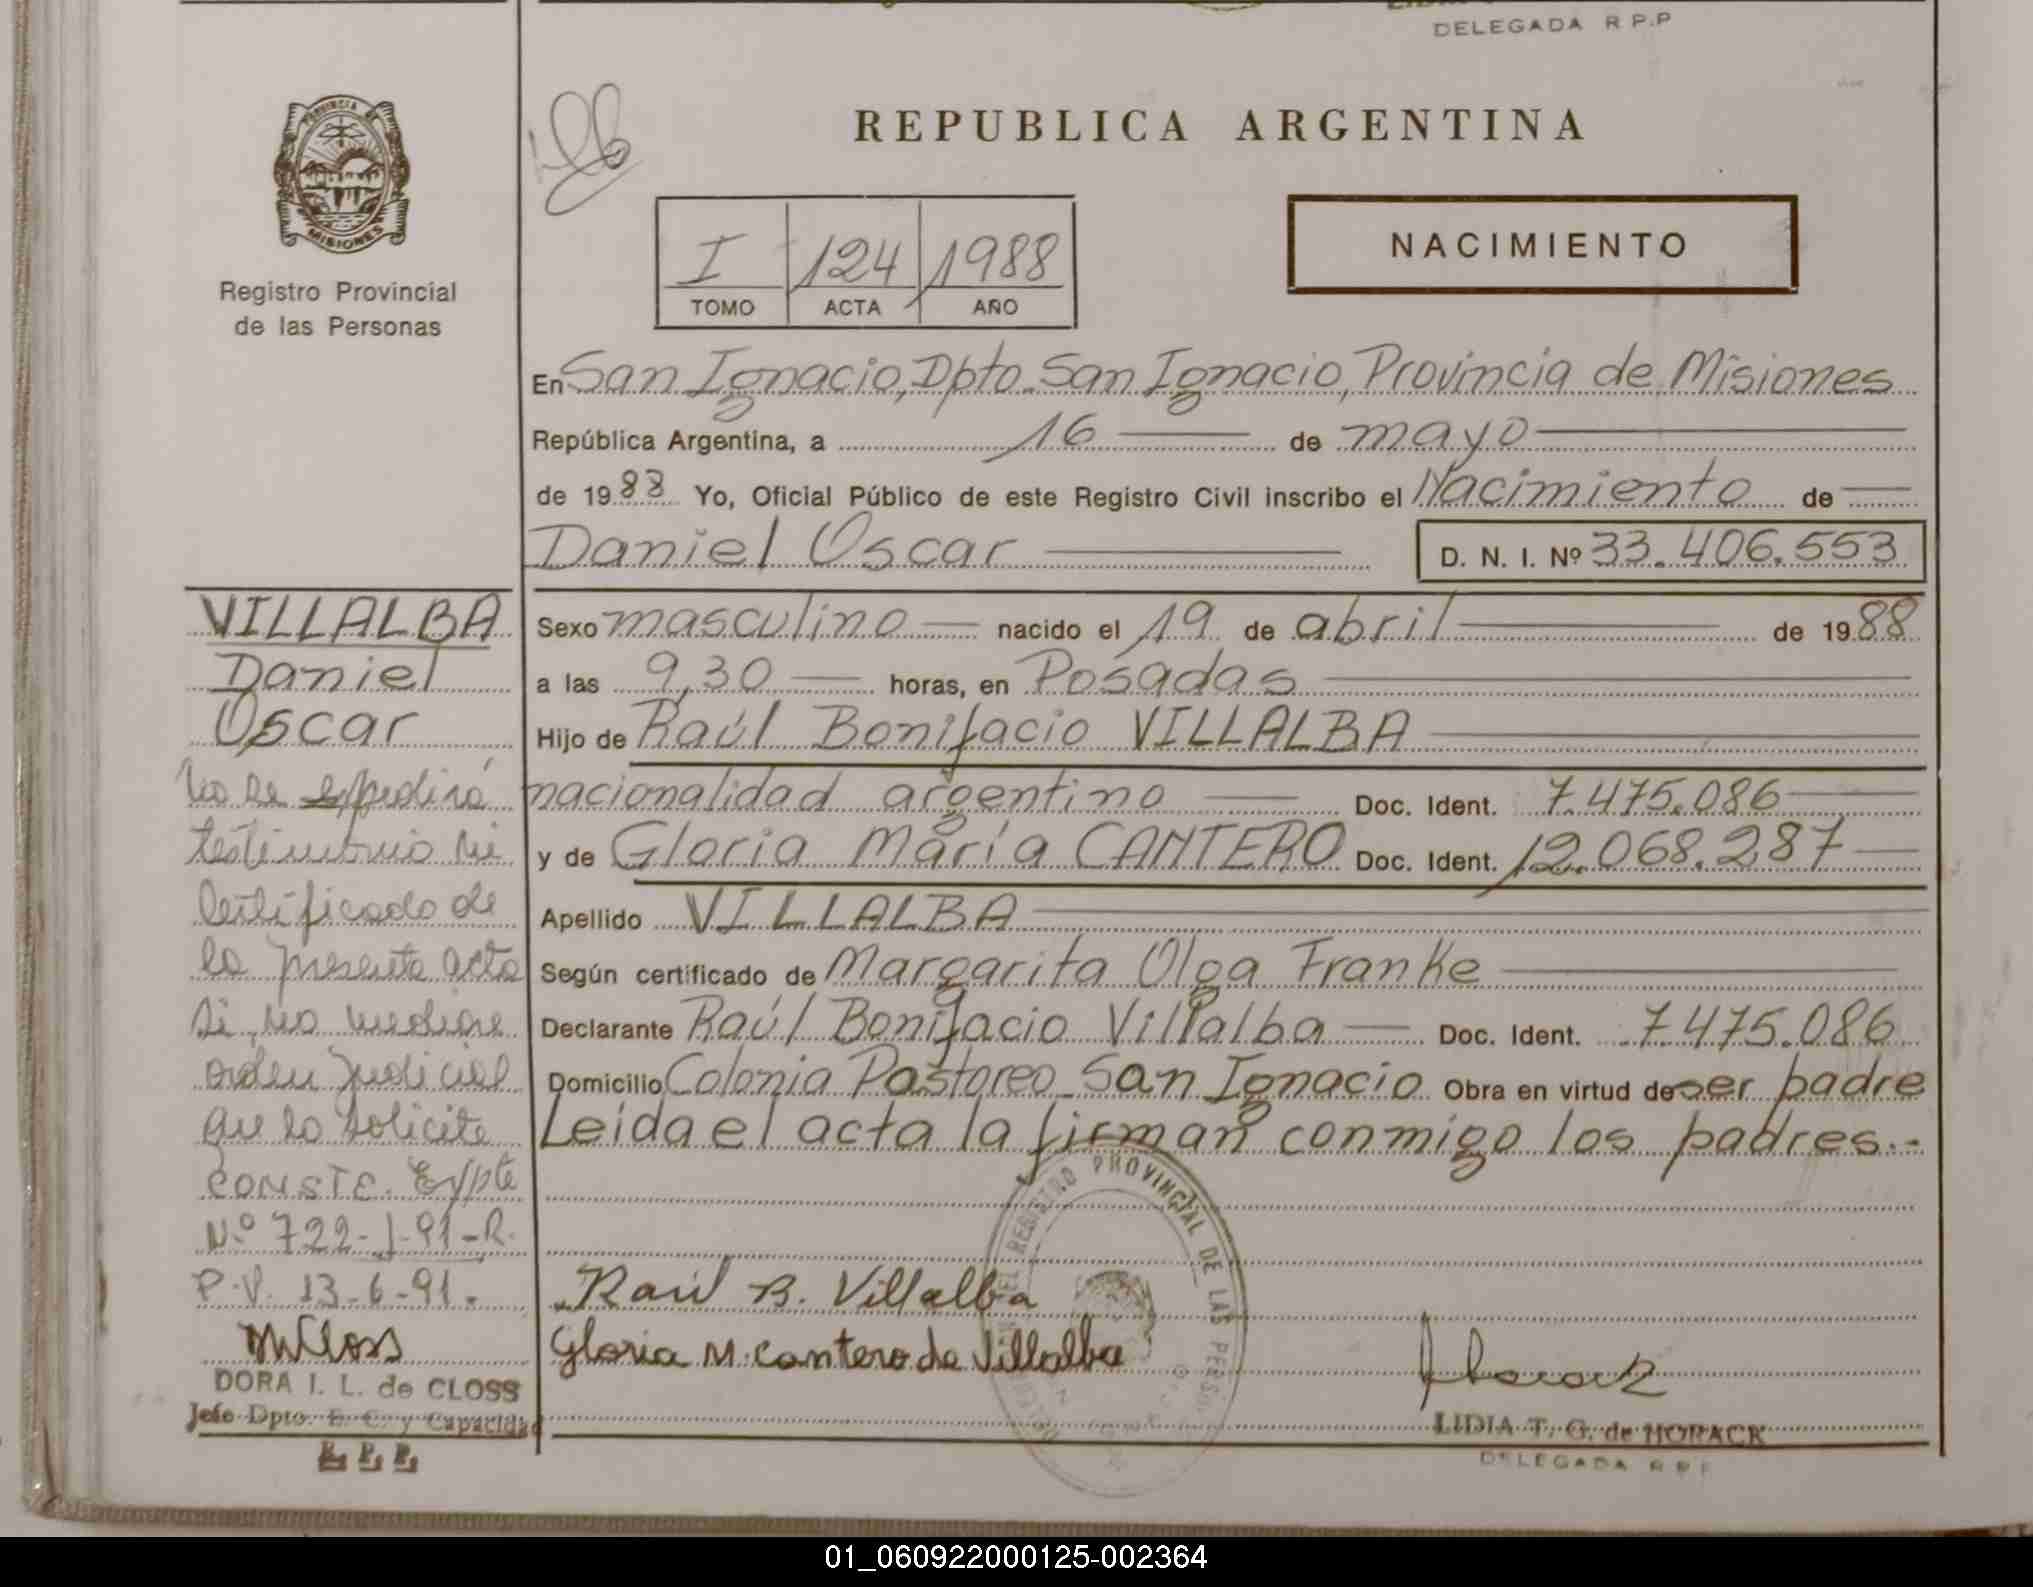 DELEGADA R P.P
PROVINCIA DE
MISIONES
Registro Provincial
de las Personas
REPUBLICA ARGENTINA
I 124 1988
TOMO ACTA AÑO
NACIMIENTO
En San Ignacio, Dpto. San Ignacio, Provincia de Misiones
República Argentina, a 16 de mayo
de 1988 Yo, Oficial Público de este Registro Civil inscribo el Nacimiento de
Daniel Oscar D. N. I. Nº 33.406.553
VILLALBA
Daniel
Oscar
No se expedirá
testimonio ni
certificado de
la presente acta
si no mediare
orden judicial
que lo solicite
CONSTE. Expte
Nº 722-J-91-R.
P.V. 13-6-91.
DORA I. L. de CLOSS
Jefe Dpto. E. C. y Capacidad
R. P. P.
Sexo masculino nacido el 19 de abril de 1988
a las 9,30 horas, en Posadas
Hijo de Raúl Bonifacio VILLALBA
nacionalidad argentino Doc. Ident. 7.475.086
y de Gloria María CANTERO Doc. Ident. 12.068.287
Apellido VILLALBA
Según certificado de Margarita Olga Franke
Declarante Raúl Bonifacio Villalba Doc. Ident. 7.475.086
Domicilio Colonia Pastoreo San Ignacio Obra en virtud de ser padre
Leída el acta la firman conmigo los padres.-
REGISTRO PROVINCIAL DE LAS PERSO
Raúl B. Villalba
Gloria M. Cantero de Villalba
Horack
LIDIA T. G. de HORACK
DELEGADA R P P
01_060922000125-002364